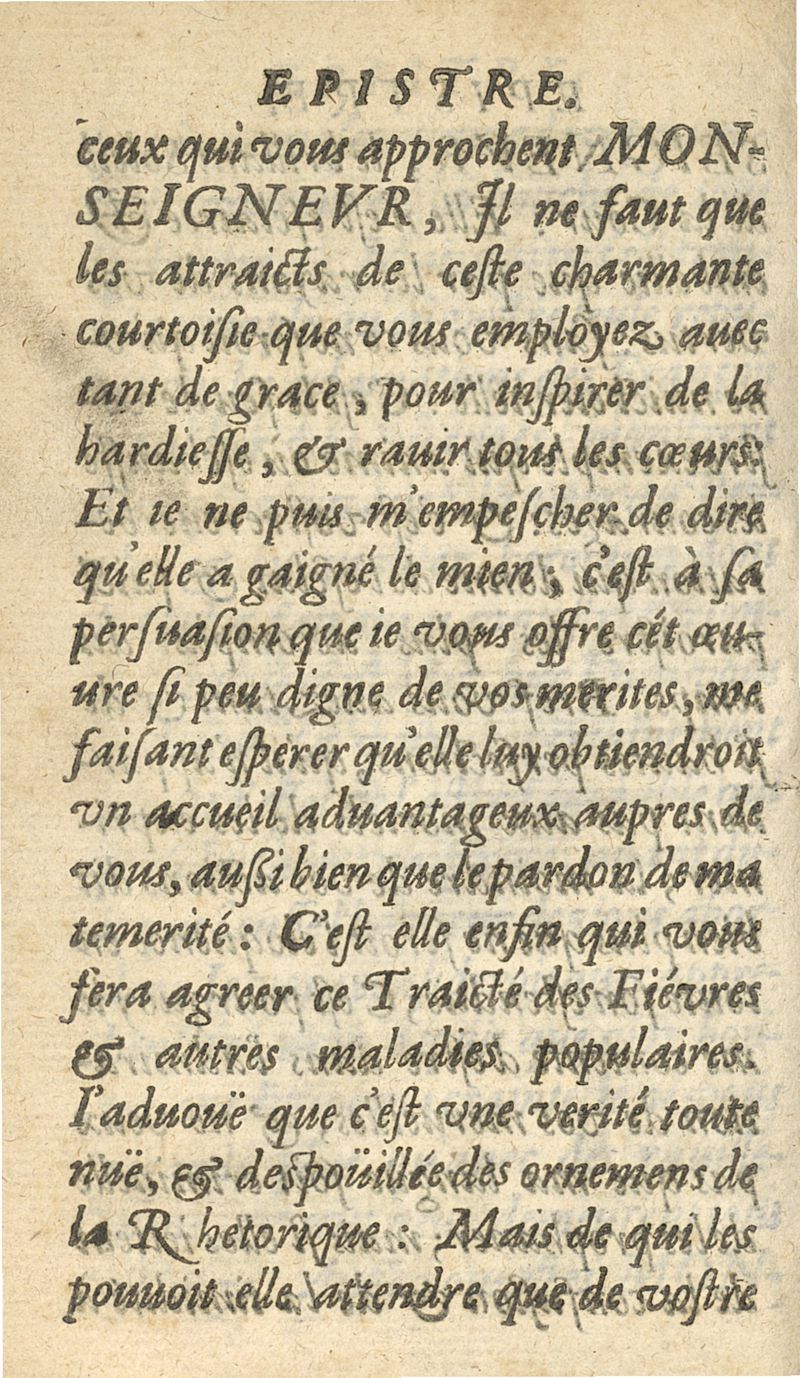 EPISTRE.
ceux qui vous approchent, MON-
SEIGNEVR, Il ne faut que
les attraicts de ceſte charmante
courtoiſie que vous employez auec
tant de grace, pour inſpirer de la
hardieſſe, & rauir tous les cœurs:
Et ie ne puis m'empeſcher de dire
qu'elle a gaigné le mien; c'eſt à ſa
perſuaſion que ie vous offre cét œu-
ure ſi peu digne de vos merites, me
faiſant eſperer qu'elle luy obtiendroit
vn accueil aduantageux aupres de
vous, auſſi bien que le pardon de ma
temerité: C'eſt elle enfin qui vous
fera agreer ce Traicté des Fiévres
& autres maladies populaires.
I'aduouë que c'eſt vne verité toute
nuë, & deſpoüillée des ornemens de
la Rhetorique: Mais de qui les
pouuoit elle attendre que de voſtre